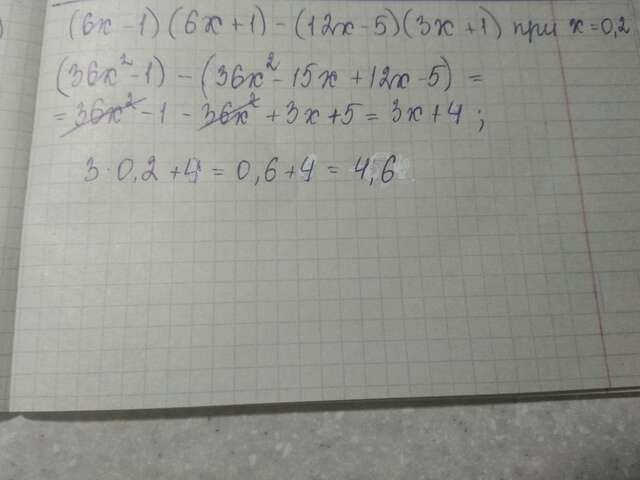 (6x-1)(6x+1)-(12x-5)(3x+1) при x=0,2
(36x²-1)-(36x²-15x+12x-5)=
=36x²-1-36x²+3x+5=3x+4;
3·0,2+4=0,6+4=4,6